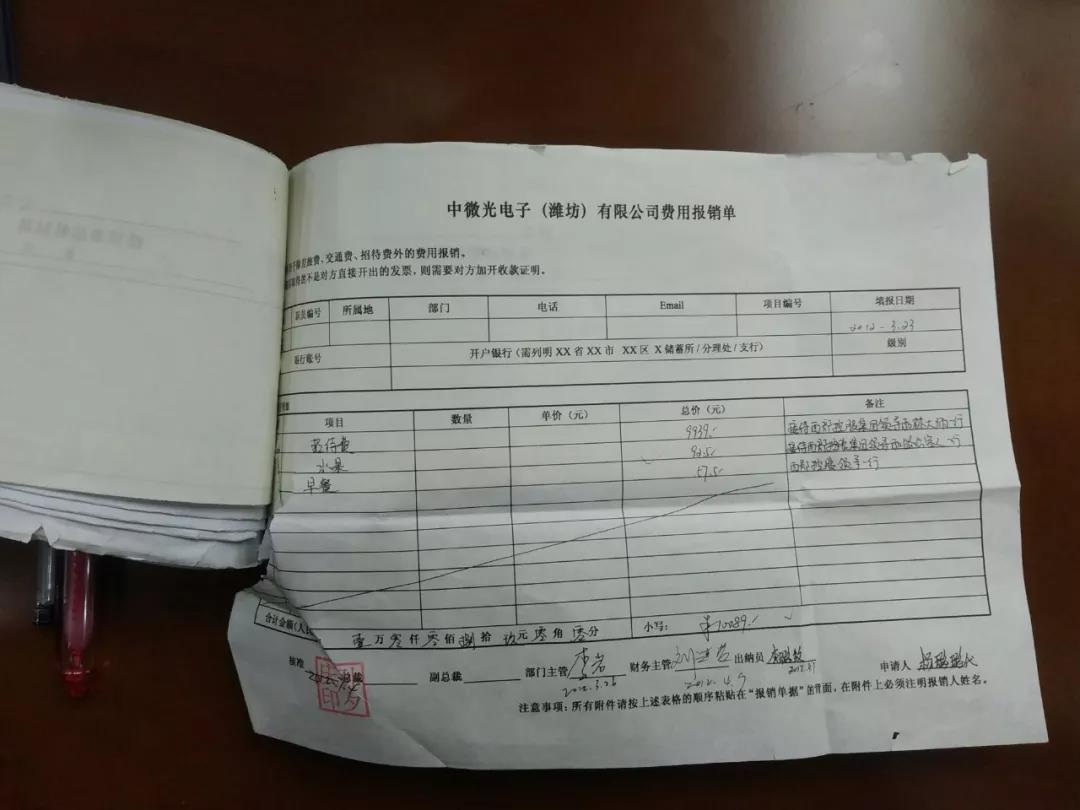 中微光电子（潍坊）有限公司费用报销单
费、交通费、招待费外的费用报销。
不是对方直接开出的发票，则需要对方加开收款证明。
职员编号 所属地 部门 电话 Email 项目编号 填报日期
2012-3.23
银行账号 开户银行（需列明XX省XX市 XX区 X储蓄所/分理处/支行） 级别
项目 数量 单价（元） 总价（元） 备注
招待费 9939.- 接待西部控股集团领导 大师一行
水果 93.5/ 接待西部控股集团领导 客人一行
早餐 57.5/ 西部控股领导一行
合计金额(人民 壹万零仟零佰捌拾玖元零角零分 小写： ¥10089.-
核准 副总裁 部门主管 李岩 财务主管 出纳员 申请人
2012.3.26 2012.4.9
注意事项：所有附件请按上述表格的顺序粘贴在“报销单据”的背面，在附件上必须注明报销人姓名。